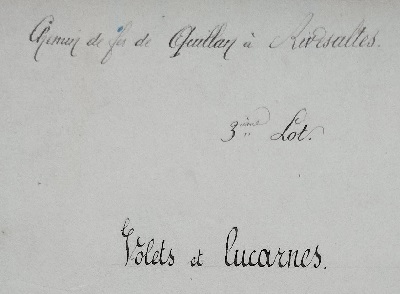 Chemin de fer de Quillan à Rivesaltes.
3ième Lot.
Volets et Lucarnes.